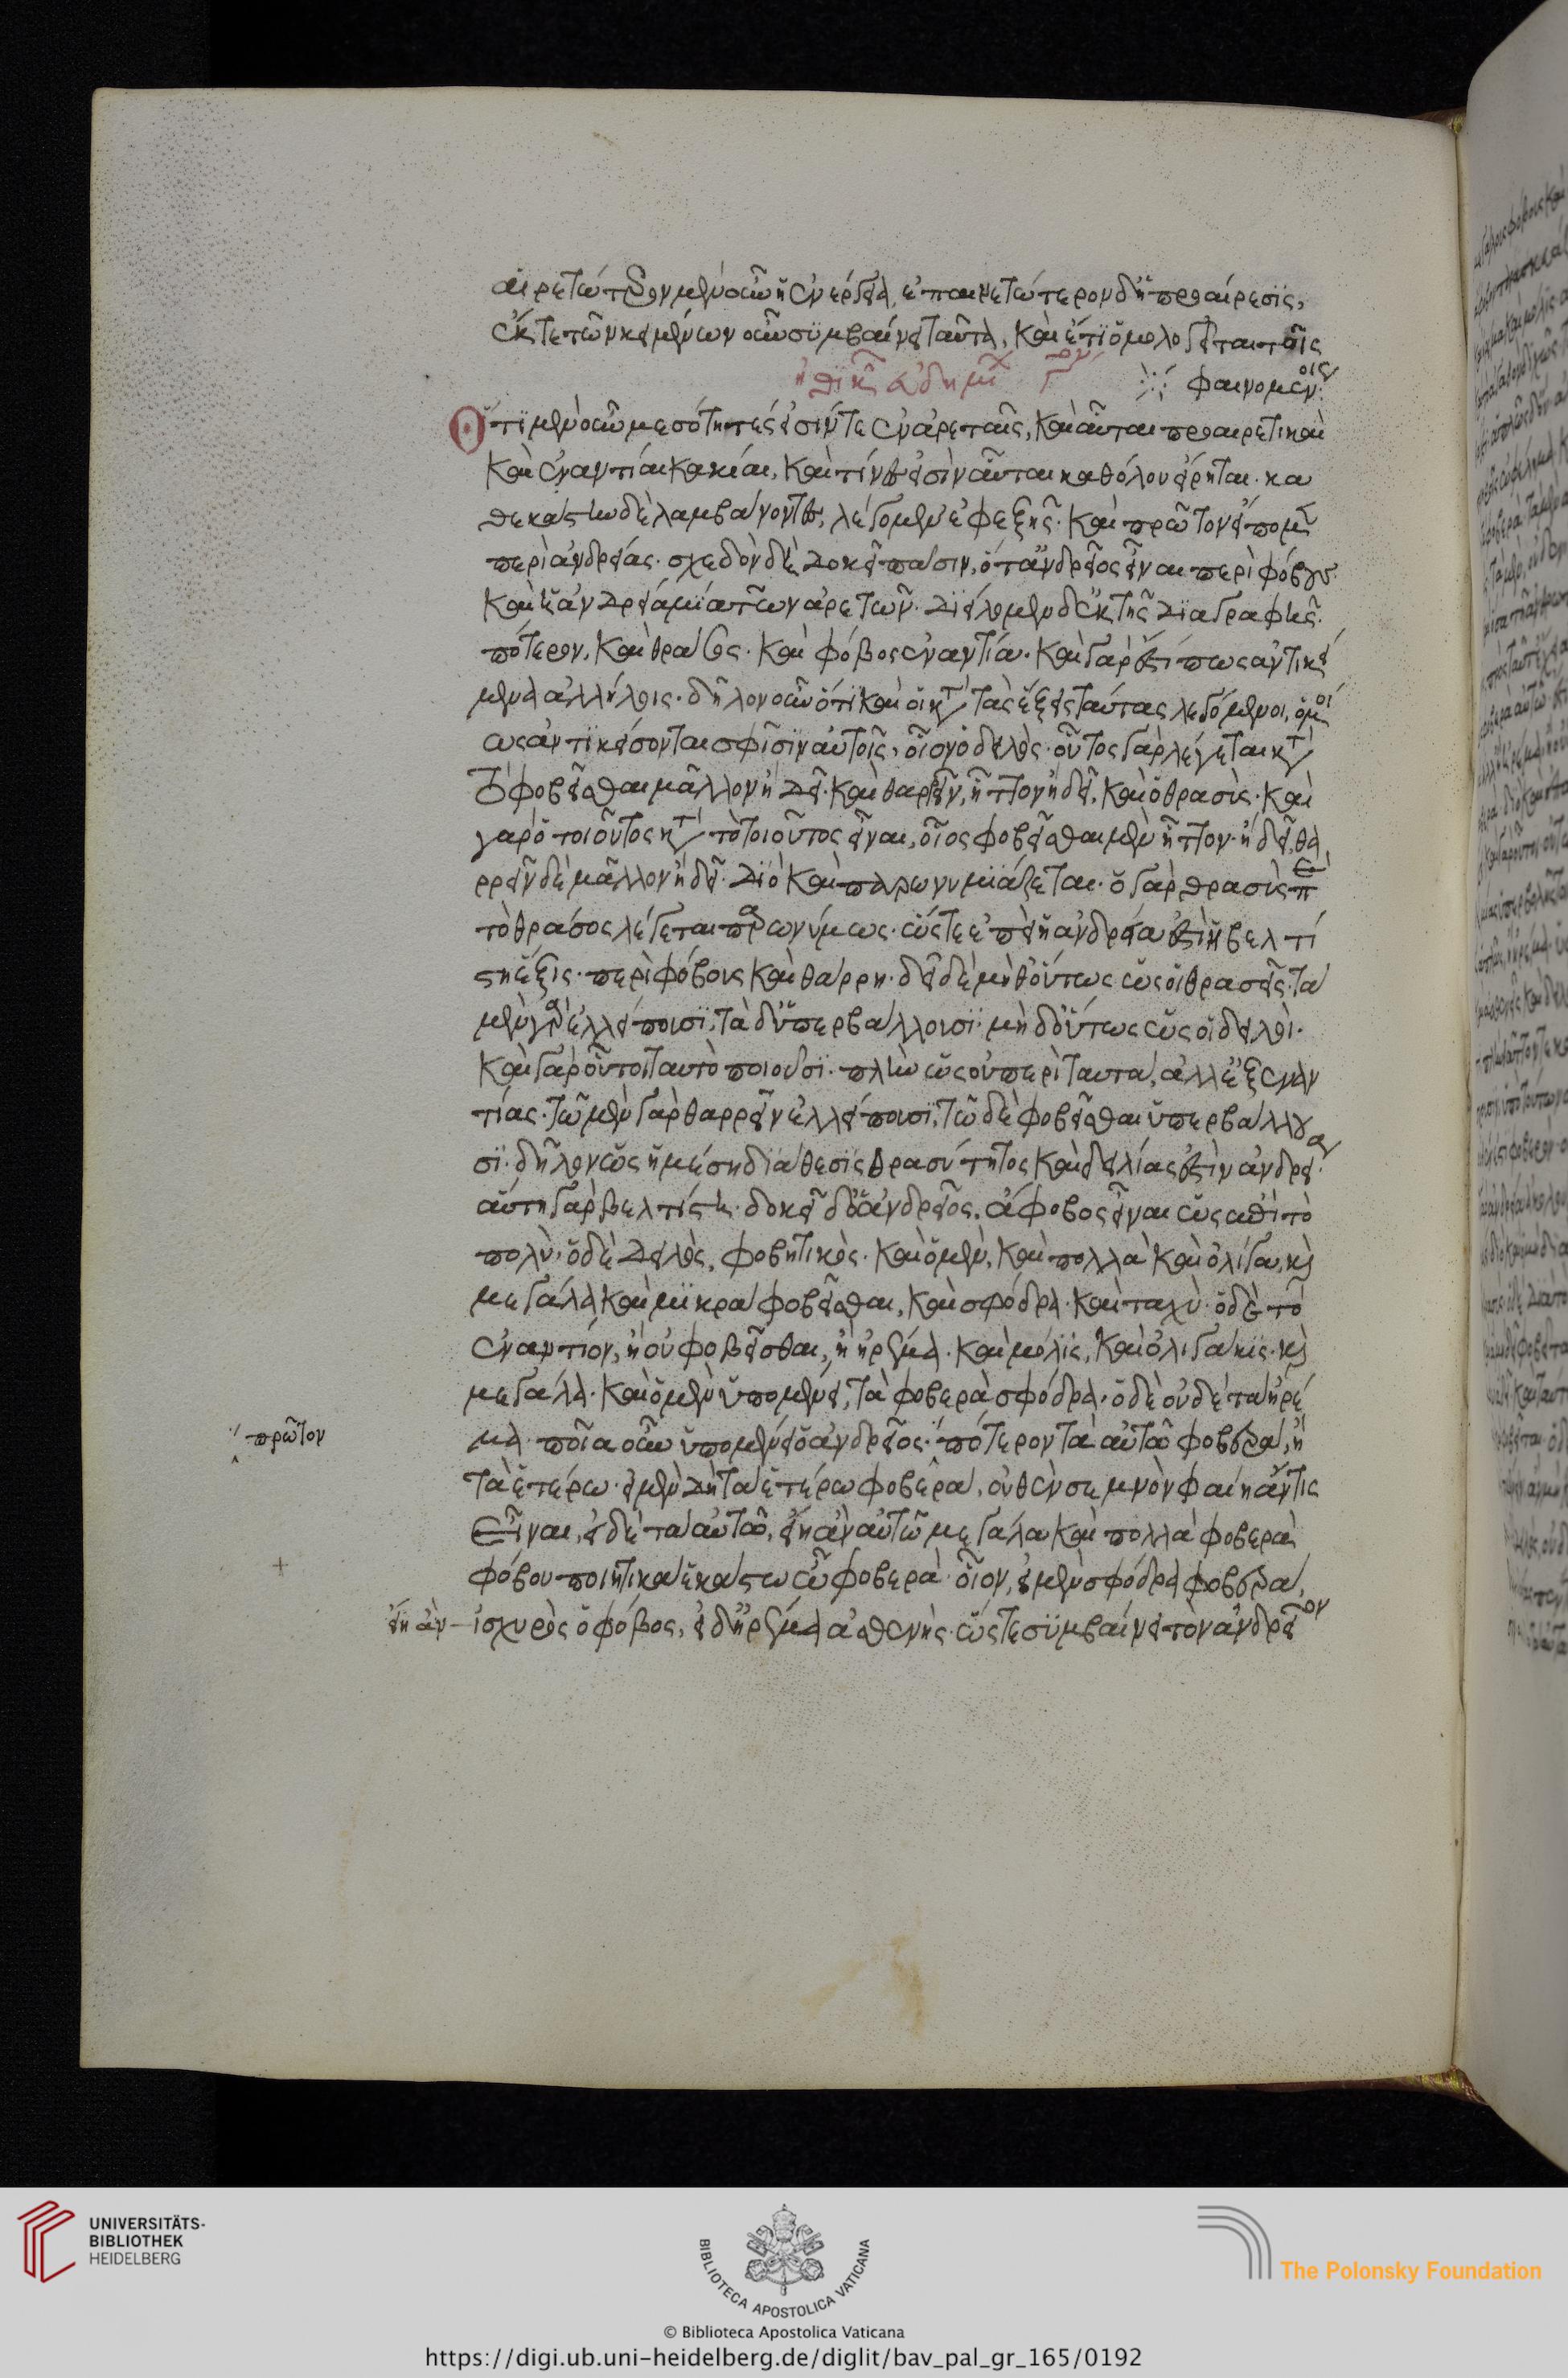 αἱρετώτερον μὲν οὖν ἡ ἐνέργεια, ἐπαινετώτερον δ' ἡ προαίρεσις,
ἔκ τε τῶν κειμένων οὖν συμβαίνει ταῦτα, καὶ ἔτι ὁμολογεῖται τοῖς
φαινομένοις
Ὅτι μὲν οὖν μεσότητές εἰσίν τε ἐν ἀρεταῖς, καὶ αὗται προαιρετικαὶ
καὶ ἐναντίαι κακίαι, καὶ τίνες εἰσὶν αὗται καθόλου εἴρηται. κα
θ' ἑκάστην δὲ λαμβάνοντες, λέγομεν ἐφεξῆς. καὶ πρῶτον εἴπομεν
περὶ ἀνδρείας. σχεδὸν δὴ δοκεῖ πᾶσιν, ὅτ' ἀνδρεῖος εἶναι περὶ φόβους.
καὶ ἡ ἀνδρεία μία τῶν ἀρετῶν. διείλομεν δ' ἐκ τῆς διαγραφῆς.
πότερον, καὶ θράσος. καὶ φόβος ἐναντία. καὶ γάρ ἐστί πως ἀντικεί
μενα ἀλλήλοις. δῆλον οὖν ὅτι καὶ οἱ κατὰ τὰς ἕξεις ταύτας λεγόμενοι, ὁμοί
ως ἀντικείσονται σφίσιν αὐτοῖς, οἷον ὁ δειλὸς. οὗτος γὰρ λέγεται κατὰ
τὸ φοβεῖσθαι μᾶλλον ἢ δεῖ. καὶ θαρρεῖν, ἧττον ἢ δεῖ, καὶ ὁ θρασὺς. καὶ
γὰρ ὁ τοιοῦτος κατὰ τὸ τοιοῦτος εἶναι, οἷος φοβεῖσθαι μὲν ἧττον. ἢ δεῖ, θα
ρρεῖν δὲ μᾶλλον ἢ δεῖ. διὸ καὶ παρωνυμιάζεται. ὁ γὰρ θρασὺς παρὰ
τὸ θράσος λέγεται παρωνύμως. ὥστε ἐπεὶ ἡ ἀνδρεία ἐστὶ ἡ βελτί
στη ἕξις. περὶ φόβους καὶ θάρρη. δεῖ δὲ μήθ' οὕτως ὡς οἱ θρασεῖς. τὰ
μὲν γὰρ ἐλλείπουσι, τὰ δ' ὑπερβάλλουσι. μὴ δ' οὕτως ὡς οἱ δειλοὶ.
καὶ γὰρ οὗτοι ταυτὸ ποιοῦσι. πλὴν ὡς οὐ περὶ ταυτά, ἀλλ' ἐξ ἐναν
τίας. τῶ μὲν γὰρ θαρρεῖν ἐλλείπουσι, τῶ δὲ φοβεῖσθαι ὑπερβάλλου
σι. δῆλον ὡς ἡ μέση διάθεσις θρασύτητος καὶ δειλίας ἐστὶν ἀνδρεία.
αὕτη γὰρ βελτίστη. δοκεῖ δ' ὁ ἀνδρεῖος, ἄφοβος εἶναι ὡς ἐπὶ τὸ
πολὺ, ὁ δὲ δειλὸς, φοβητικὸς. καὶ ὁ μὲν, καὶ πολλὰ καὶ ὀλίγα, καὶ
μεγάλα καὶ μικρὰ φοβεῖσθαι, καὶ σφόδρα. καὶ ταχὺ. ὁ δὲ τὸ
ἐναντίον, ἢ οὐ φοβεῖσθαι, ἢ ἠρέμα. καὶ μόλις, καὶ ὀλιγάκις. καὶ
μεγάλα. καὶ ὁ μὲν ὑπομένει, τὰ φοβερὰ σφόδρα. ὁ δὲ οὐδὲ τὰ ἠρέ
μα. ποῖα οὖν ὑπομένει ὁ ἀνδρεῖος. πότερον τὰ αὐτῶ φοβερὰ, ἢ
πρῶτον
τὰ ἑτέρω. εἰ μὲν δὴ τὰ ἑτέρω φοβερὰ, οὐθὲν σεμνὸν φαίη ἄν τις
εἶναι, εἰ δὲ τὰ αὐτῶ, εἴη ἂν αὐτῶ μεγάλα καὶ πολλὰ φοβερὰ
φόβου ποιητικὰ ἑκάστω ὧ φοβερὰ. οἷον, εἰ μὲν σφόδρα φοβερὰ,
εἴη ἂν
ἰσχυρὸς ὁ φόβος, εἰ δ' ἠρέμα ἀσθενὴς. ὥστε συμβαίνει τὸν ἀνδρεῖον
UNIVERSITÄTS-
BIBLIOTHEK
HEIDELBERG
BIBLIOTECA APOSTOLICA VATICANA
The Polonsky Foundation
© Biblioteca Apostolica Vaticana
https://digi.ub.uni-heidelberg.de/diglit/bav_pal_gr_165/0192